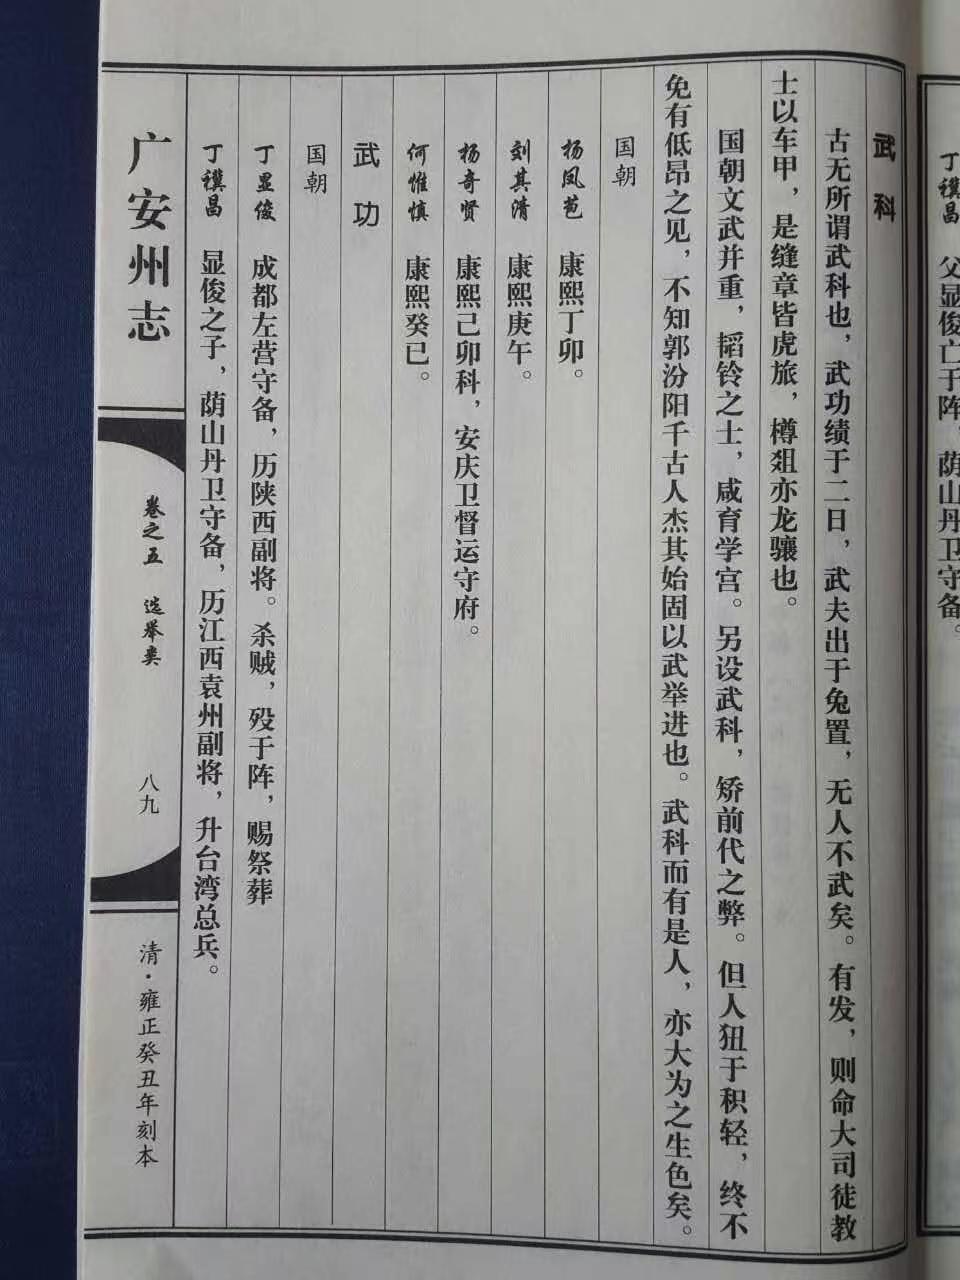 丁禩昌 父显俊亡于阵，荫山丹卫守备。
武科
古无所谓武科也，武功绩于二日，武夫出于兔置，无人不武矣。有发，则命大司徒教
士以车甲，是缝章皆虎旅，樽俎亦龙骧也。
国朝文武并重，韬铃之士，咸育学宫。另设武科，矫前代之弊。但人狃于积轻，终不
免有低昂之见，不知郭汾阳千古人杰其始固以武举进也。武科而有是人，亦大为之生色矣。
国朝
杨凤苞 康熙丁卯。
刘其清 康熙庚午。
杨奇贤 康熙己卯科，安庆卫督运守府。
何惟慎 康熙癸巳。
武功
国朝
丁显俊 成都左营守备，历陕西副将。杀贼，殁于阵，赐祭葬
丁禩昌 显俊之子，荫山丹卫守备，历江西袁州副将，升台湾总兵。
广安州志
卷之五 选举类
八九
清·雍正癸丑年刻本